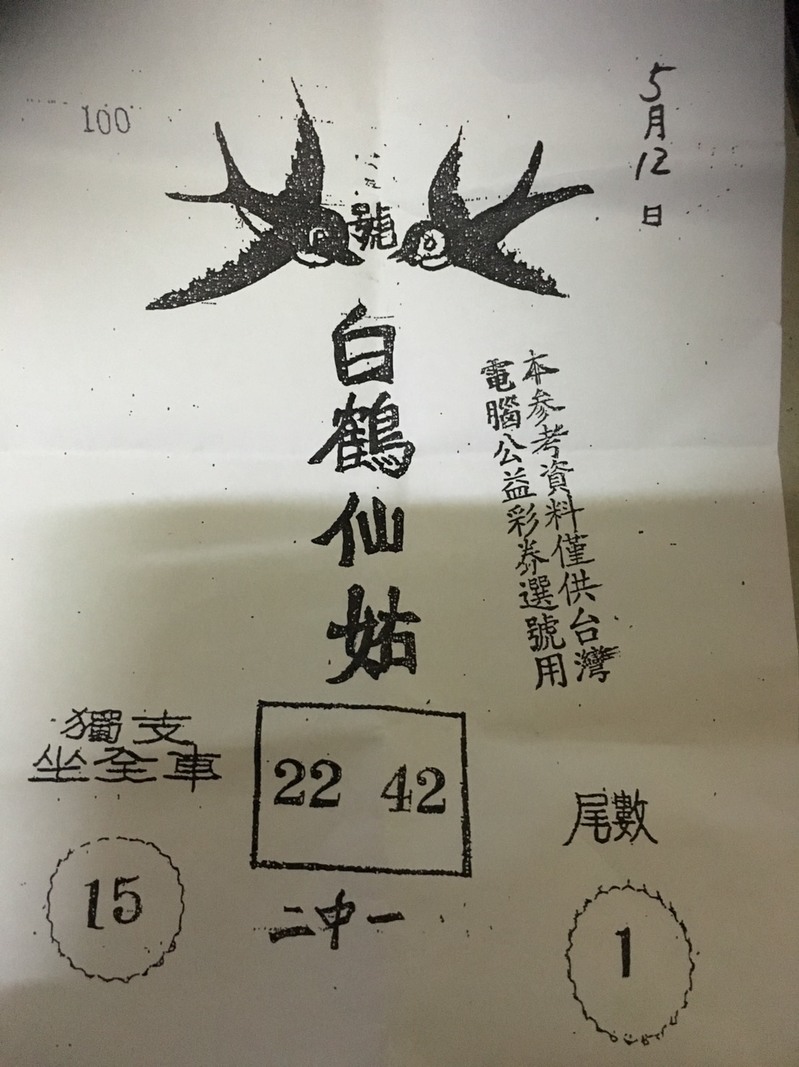 100
5月12日
號
白鶴仙姑
本參考資料僅供台灣
電腦公益彩券選號用
獨支
坐全車
15
22 42
二中一
尾數
1